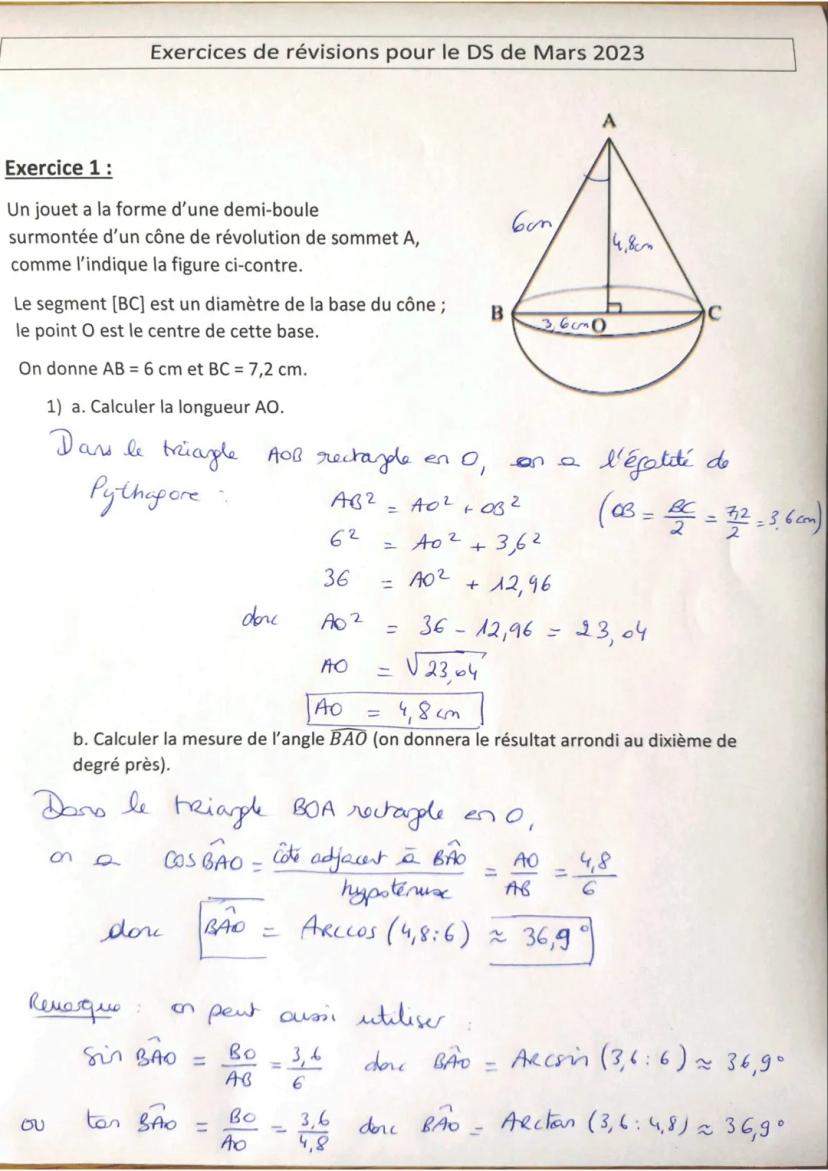 Exercices de révisions pour le DS de Mars 2023
Exercice 1 :
Un jouet a la forme d'une demi-boule
surmontée d'un cône de révolution de sommet A,
comme l'indique la figure ci-contre.
Le segment [BC] est un diamètre de la base du cône ;
le point O est le centre de cette base.
On donne AB = 6 cm et BC = 7,2 cm.
A
6cm
4,8cm
B
C
3,6cm O
1) a. Calculer la longueur AO.
Dans le triangle AOB rectangle en O, on a l'égalité de
Pythagore :
AB² = AO² + OB² (OB = BC/2 = 7,2/2 = 3,6 cm)
6² = AO² + 3,6²
36 = AO² + 12,96
donc AO² = 36 - 12,96 = 23,04
AO = √23,04
AO = 4,8 cm
b. Calculer la mesure de l'angle \widehat{BAO} (on donnera le résultat arrondi au dixième de
degré près).
Dans le triangle BOA rectangle en O,
on a cos \widehat{BAO} = côté adjacent à \widehat{BAO}/hypoténuse = AO/AB = 4,8/6
donc \widehat{BAO} = Arccos (4,8:6) ≈ 36,9°
Remarque : on peut aussi utiliser :
sin \widehat{BAO} = BO/AB = 3,6/6 donc \widehat{BAO} = Arcsin (3,6:6) ≈ 36,9°
ou tan \widehat{BAO} = BO/AO = 3,6/4,8 donc \widehat{BAO} = Arctan (3,6:4,8) ≈ 36,9°